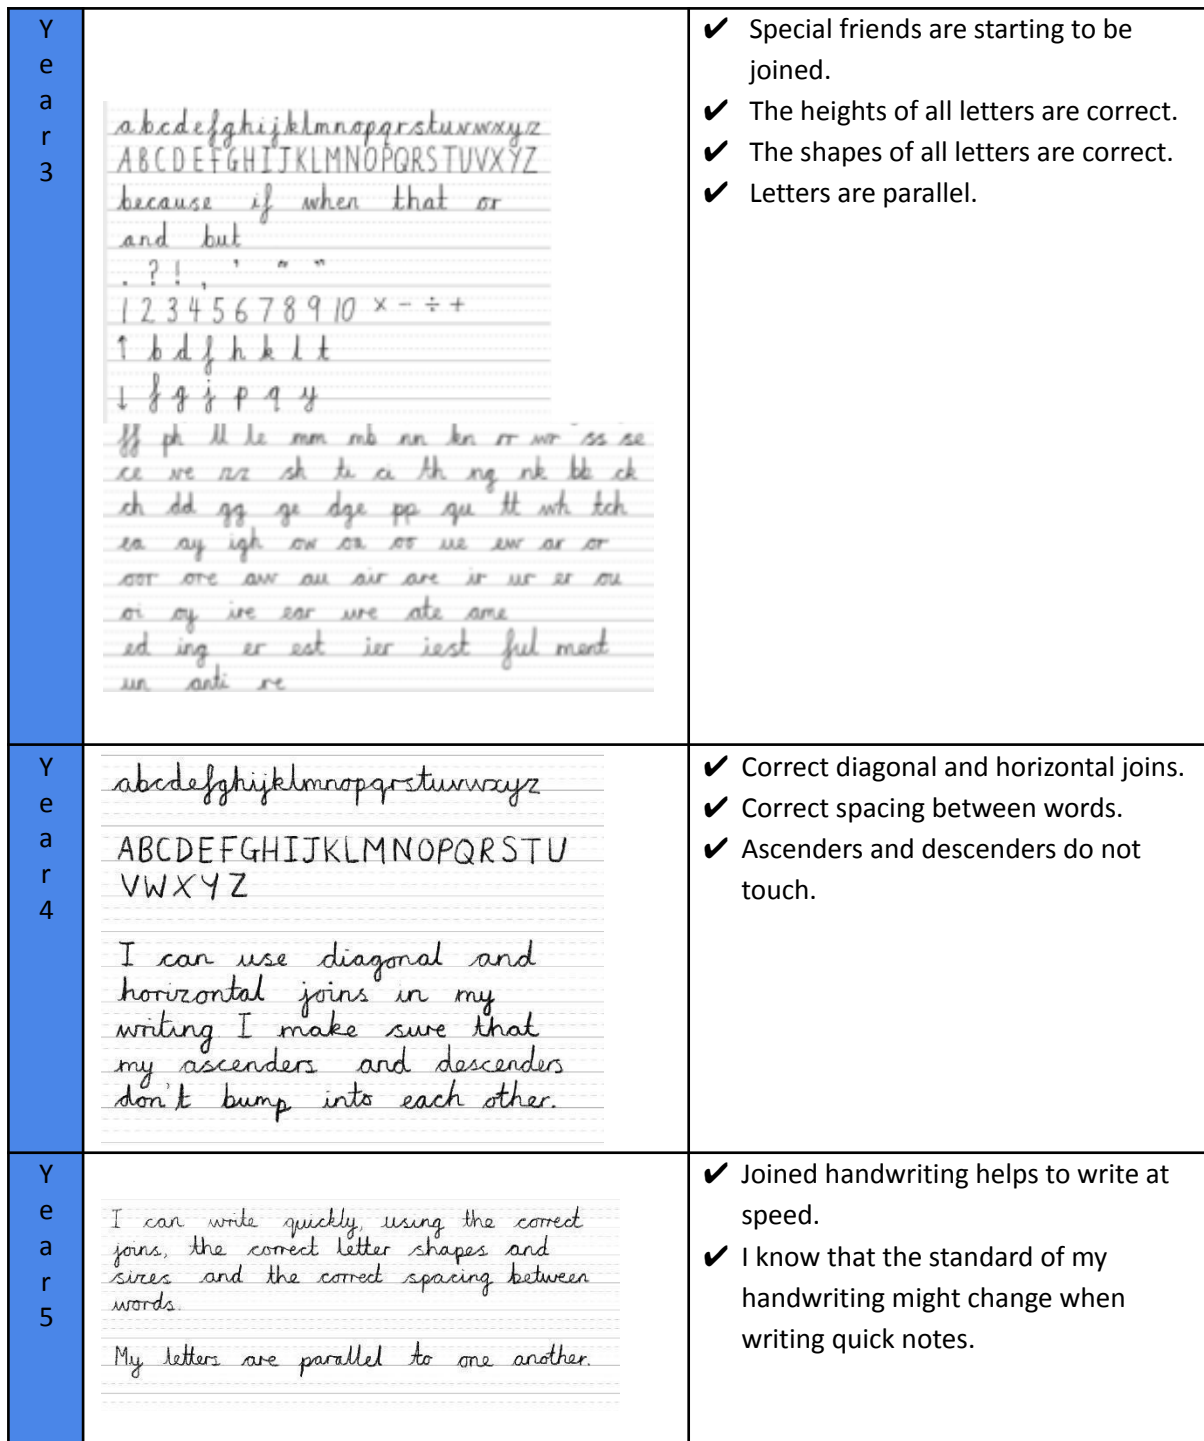 Year 3
abcdefghijklmnopqrstuvwxyz
ABCDEFGHIJKLMNOPQRSTUVXYZ
because if when that or
and but
. ? ! , ' " "
1 2 3 4 5 6 7 8 9 10 × - ÷ +
↑ b d f h k l t
↓ f g j p q y
ff ph ll le mm mb nn kn rr wr ss se
ce ve zz sh ti ci th ng nk bb ck
ch dd gg ge dge pp qu tt wh tch
ea ay igh ow oa oo ue ew ar or
oor ore aw au air are ir ur er ou
oi oy ire ear ure ate ame
ed ing er est ier iest ful ment
un anti re
✔ Special friends are starting to be
joined.
✔ The heights of all letters are correct.
✔ The shapes of all letters are correct.
✔ Letters are parallel.
Year 4
abcdefghijklmnopqrstuvwxyz
ABCDEFGHIJKLMNOPQRSTU
VWXYZ
I can use diagonal and
horizontal joins in my
writing I make sure that
my ascenders and descenders
don't bump into each other.
✔ Correct diagonal and horizontal joins.
✔ Correct spacing between words.
✔ Ascenders and descenders do not
touch.
Year 5
I can write quickly, using the correct
joins, the correct letter shapes and
sizes and the correct spacing between
words.
My letters are parallel to one another.
✔ Joined handwriting helps to write at
speed.
✔ I know that the standard of my
handwriting might change when
writing quick notes.